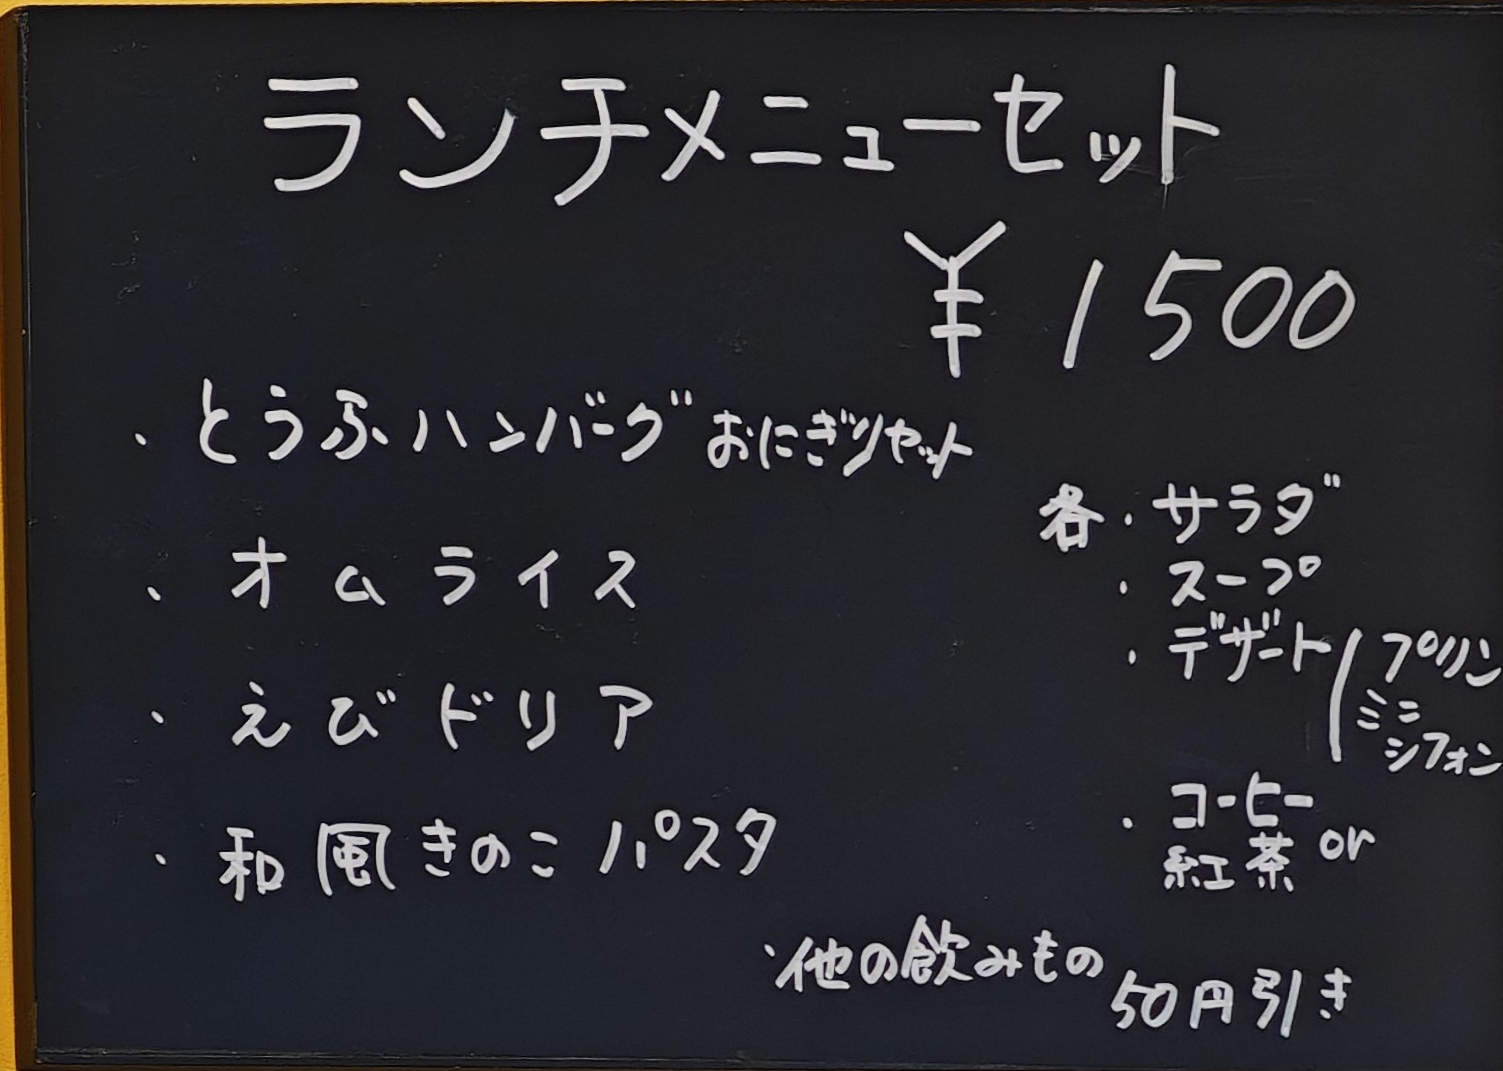 ランチメニューセット
¥1500
・とうふハンバーグ おにぎりセット
・オムライス
・えびドリア
・和風きのこパスタ
各・サラダ
・スープ
・デザート/プリン
ミニ
シフォン
・コーヒー or
紅茶
・他の飲みもの 50円引き